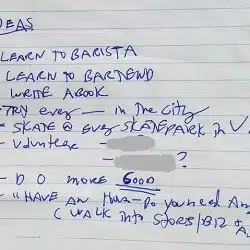 DEAS
LEARN TO BARISTA
LEARN TO BARTEND
WRITE A BOOK
- TRY every — in the City
- SKATE @ every SKATEPARK in V
- Volunteer -
- ?
- DO MORE GOOD
- "HAVE AN Do you need An
( WALK into STORES/BIZ &